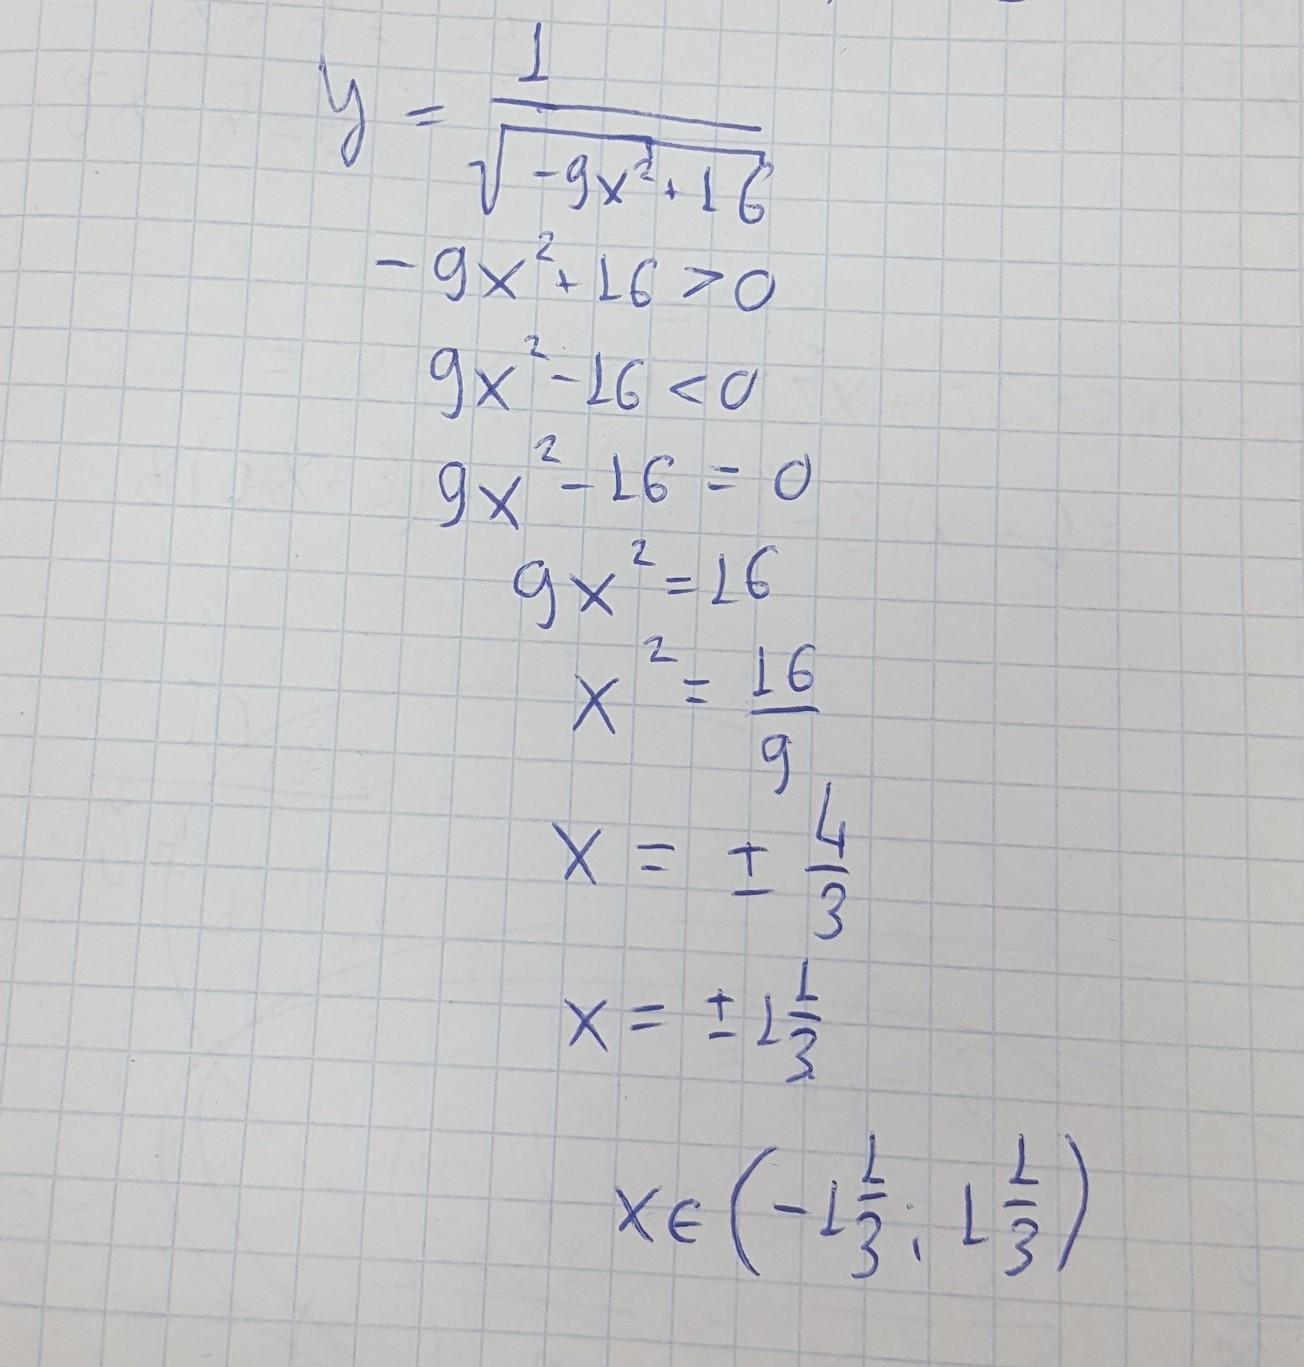 y = 1/√(-9x²+16)
-9x²+16>0
9x²-16<0
9x²-16=0
9x²=16
x²=16/9
x=±4/3
x=±1 1/3
x∈(-1 1/3; 1 1/3)